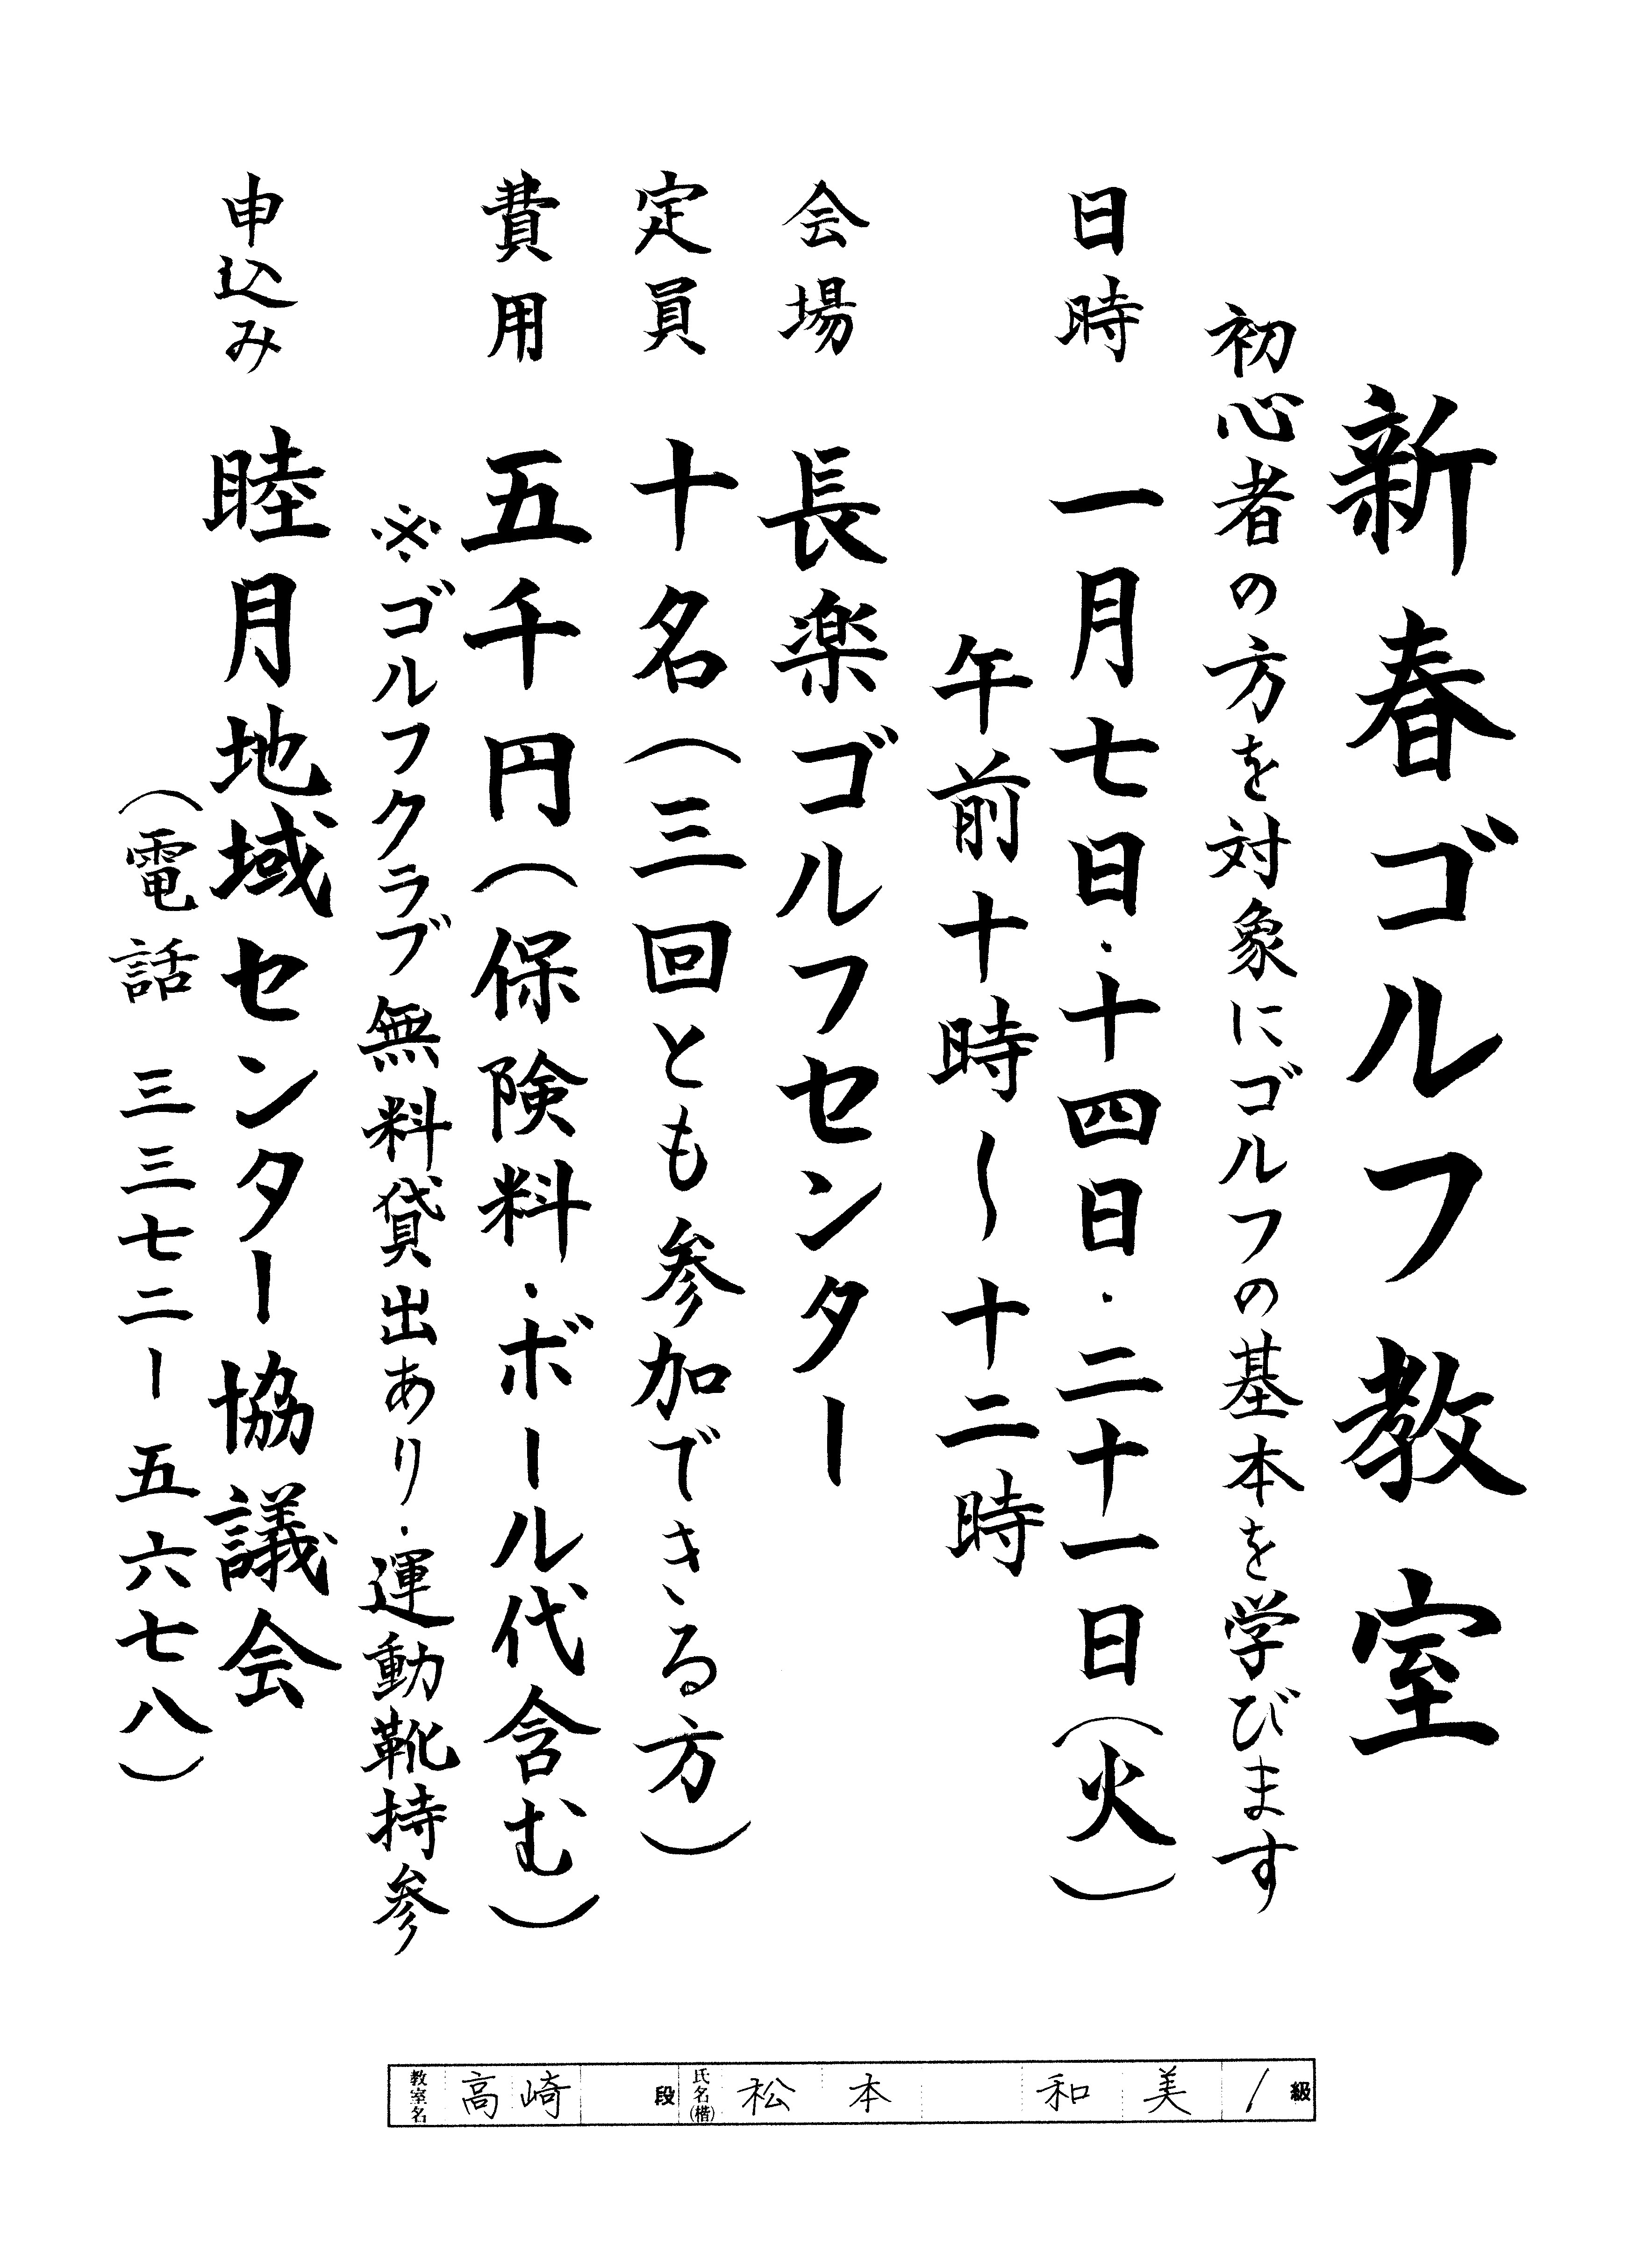 新春ゴルフ教室
初心者の方を対象にゴルフの基本を学びます
日時 一月七日・十四日・二十一日（火）
午前十時～十二時
会場 長楽ゴルフセンター
定員 十名（三回とも参加できる方）
費用 五千円（保険料・ボール代含む）
※ゴルフクラブ無料貸出あり・運動靴持参
申込み 睦月地域センター協議会
（電話 三三七二ー五六七八）
教室名 高崎 段 氏名(楷) 松本 和美 1級